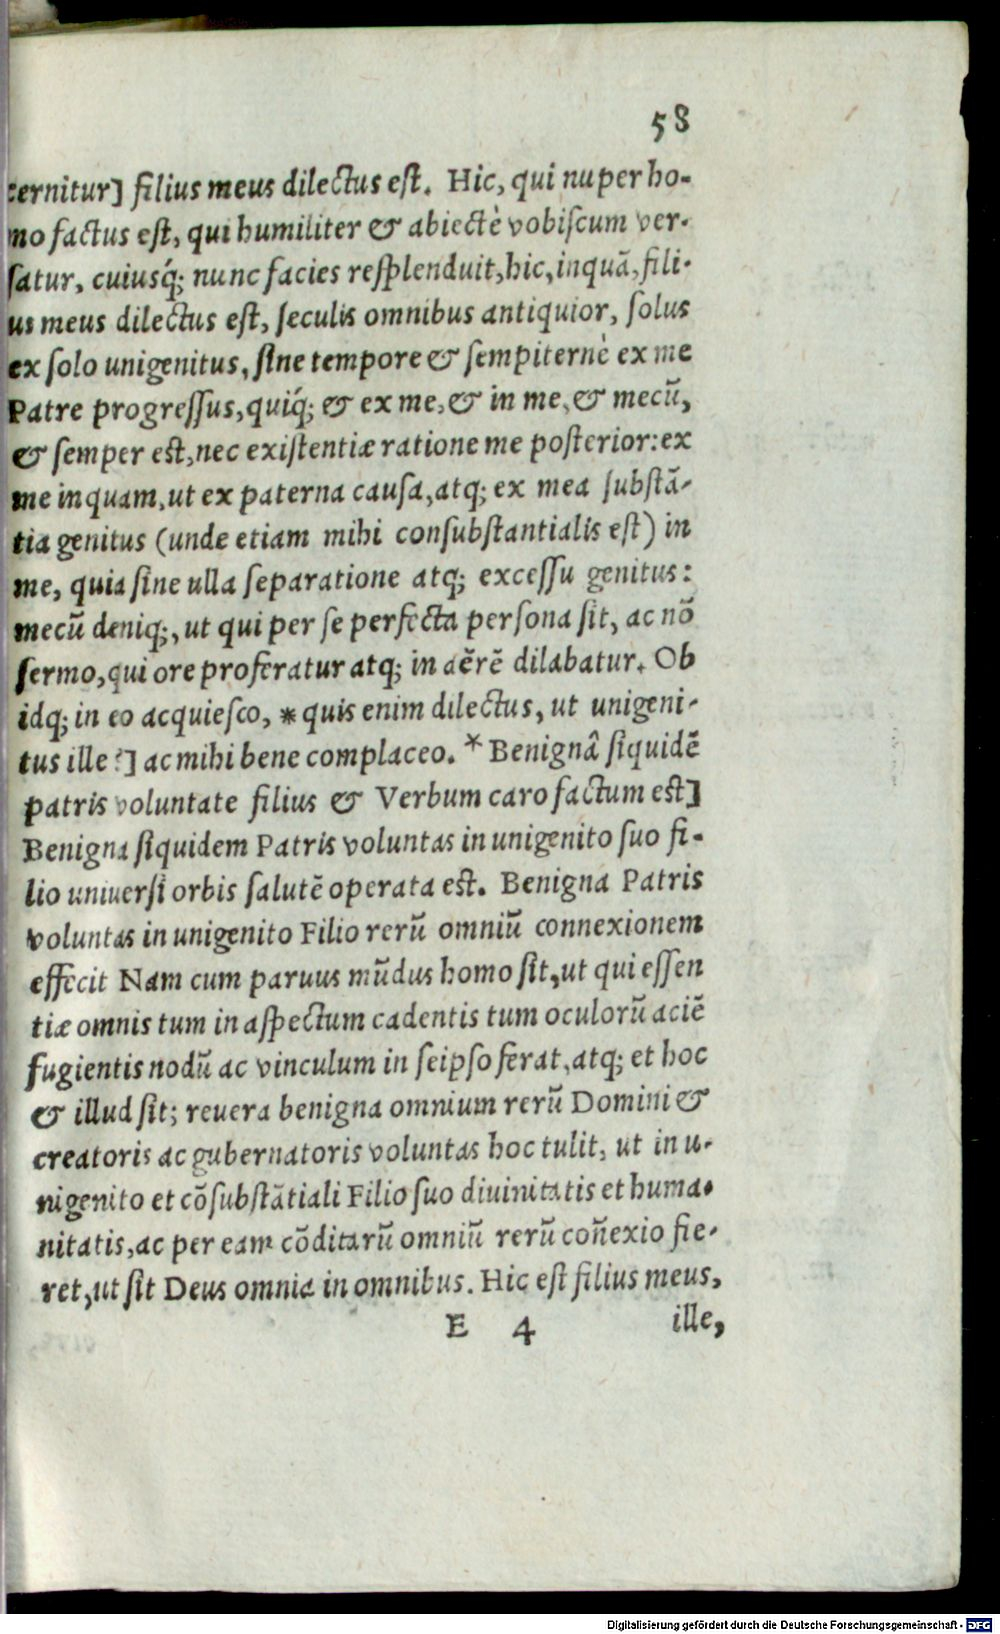 58
cernitur] filius meus dilectus est. Hic, qui nuper ho-
mo factus est, qui humiliter & abiectè vobiſcum ver-
ſatur, cuiusq́; nunc facies reſplenduit, hic, inquā, fili-
us meus dilectus est, ſeculis omnibus antiquior, ſolus
ex ſolo unigenitus, ſine tempore & ſempiternè ex me
Patre progreſſus, quiq́; & ex me, & in me, & mecū,
& ſemper est, nec exiſtentiæ ratione me poſterior: ex
me inquam, ut ex paterna cauſa, atq; ex mea ſubſtā-
tia genitus (unde etiam mihi conſubſtantialis eſt) in
me, quia ſine ulla ſeparatione atq; exceſſu genitus:
mecū deniq;, ut qui per ſe perfecta perſona ſit, ac nō
ſermo, qui ore proferatur atq; in aërē dilabatur. Ob
idq; in eo acquieſco, * quis enim dilectus, ut unigeni-
tus ille?] ac mihi bene complaceo. * Benignâ ſiquidē
patris voluntate filius & Verbum caro factum est]
Benigna ſiquidem Patris voluntas in unigenito ſuo fi-
lio univerſi orbis ſalutē operata est. Benigna Patris
voluntas in unigenito Filio rerū omniū connexionem
effecit Nam cum parvus mūdus homo ſit, ut qui eſſen
tiæ omnis tum in aſpectum cadentis tum oculorū aciē
fugientis nodū ac vinculum in ſeipſo ferat, atq; et hoc
& illud ſit; revera benigna omnium rerū Domini &
creatoris ac gubernatoris voluntas hoc tulit, ut in u-
nigenito et cōſubſtātiali Filio ſuo divinitatis et huma-
nitatis, ac per eam cōditarū omniū rerū con̄exio fie-
ret, ut ſit Deus omnia in omnibus. Hic eſt filius meus,
E 4 ille,
Digitalisierung gefördert durch die Deutsche Forschungsgemeinschaft - DFG